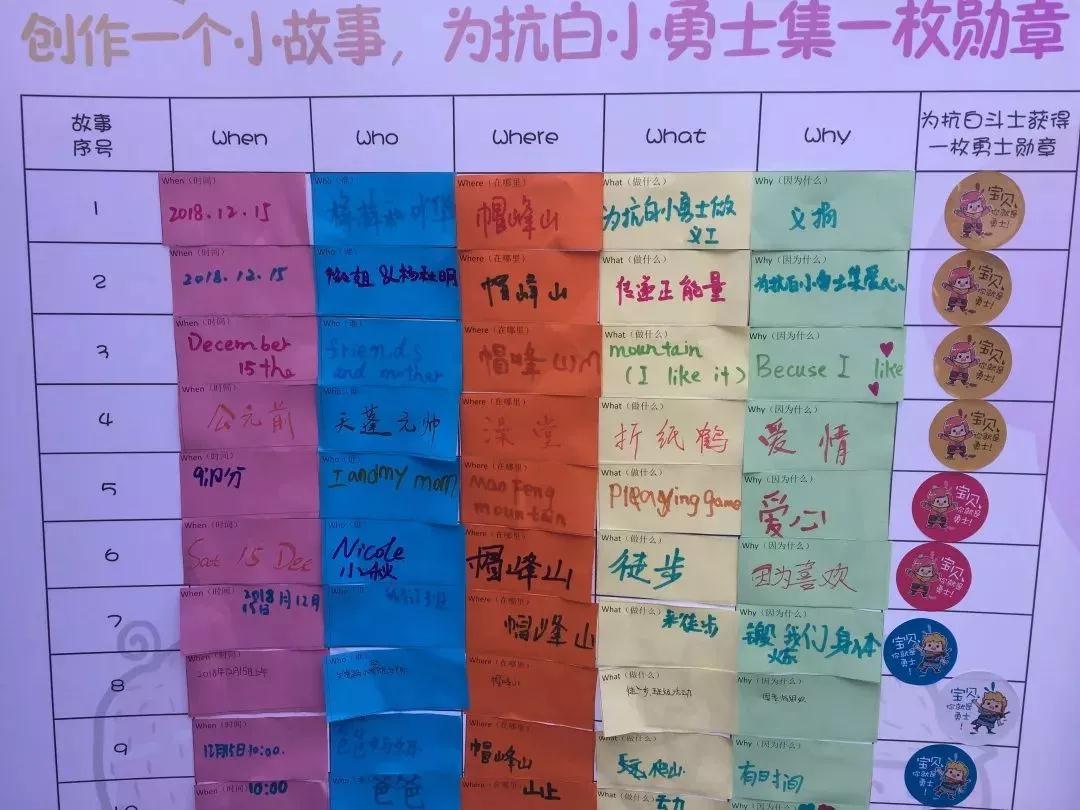 创作一个小故事，为抗白小勇士集一枚勋章
故事序号 When Who Where What Why 为抗白斗士获得一枚勇士勋章
1
When（时间） Who（谁） Where（在哪里） What（做什么） Why（因为什么）
2018.12.15 帽峰山 为抗白小勇士做义工 义捐
宝贝，你就是勇士！
2
When（时间） Who（谁） Where（在哪里） What（做什么） Why（因为什么）
2018.12.15 帽峰山 传递正能量 为抗白小勇士集爱心
宝贝，你就是勇士！
3
When（时间） Who（谁） Where（在哪里） What（做什么） Why（因为什么）
December 15the friends and mother 帽峰山 mountain (I like it) Becuse I like
宝贝，你就是勇士！
4
When（时间） Who（谁） Where（在哪里） What（做什么） Why（因为什么）
公元前 天蓬元帅 澡堂 折纸鹤 爱情
宝贝，你就是勇士！
5
When（时间） Who（谁） Where（在哪里） What（做什么） Why（因为什么）
I and my mom Mao feng mountain game 爱心
宝贝，你就是勇士！
6
When（时间） Who（谁） Where（在哪里） What（做什么） Why（因为什么）
15 Dec Nicole 小秋 帽峰山 徒步 因为喜欢
宝贝，你就是勇士！
7
When（时间） Who（谁） Where（在哪里） What（做什么） Why（因为什么）
2018 12月 15日 帽峰山 来徒步 我们身体
宝贝，你就是勇士！
8
When（时间） Who（谁） Where（在哪里） What（做什么） Why（因为什么）
2018年12月15日 帽峰山
宝贝，你就是勇士！
9
When（时间） Who（谁） Where（在哪里） What（做什么） Why（因为什么）
12月15日10:00. 帽峰山 玩爬山 有时间
宝贝，你就是勇士！
10
When（时间） Who（谁） Where（在哪里） What（做什么） Why（因为什么）
10:00 爸爸 山上